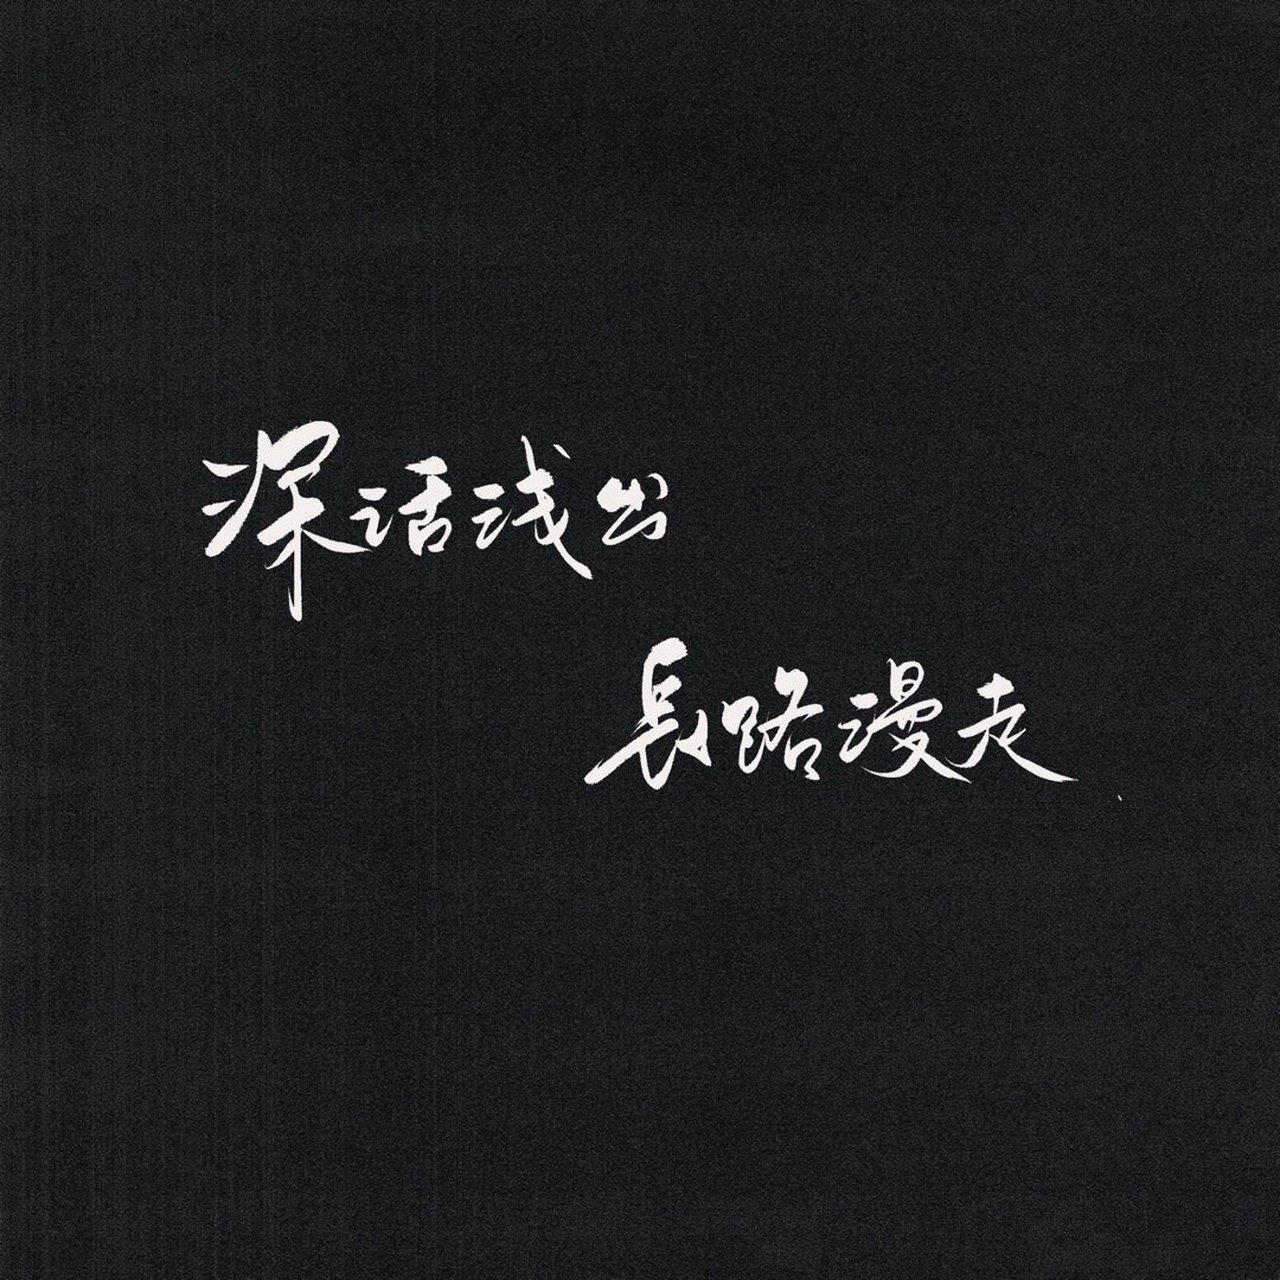 深话浅出
長路漫走